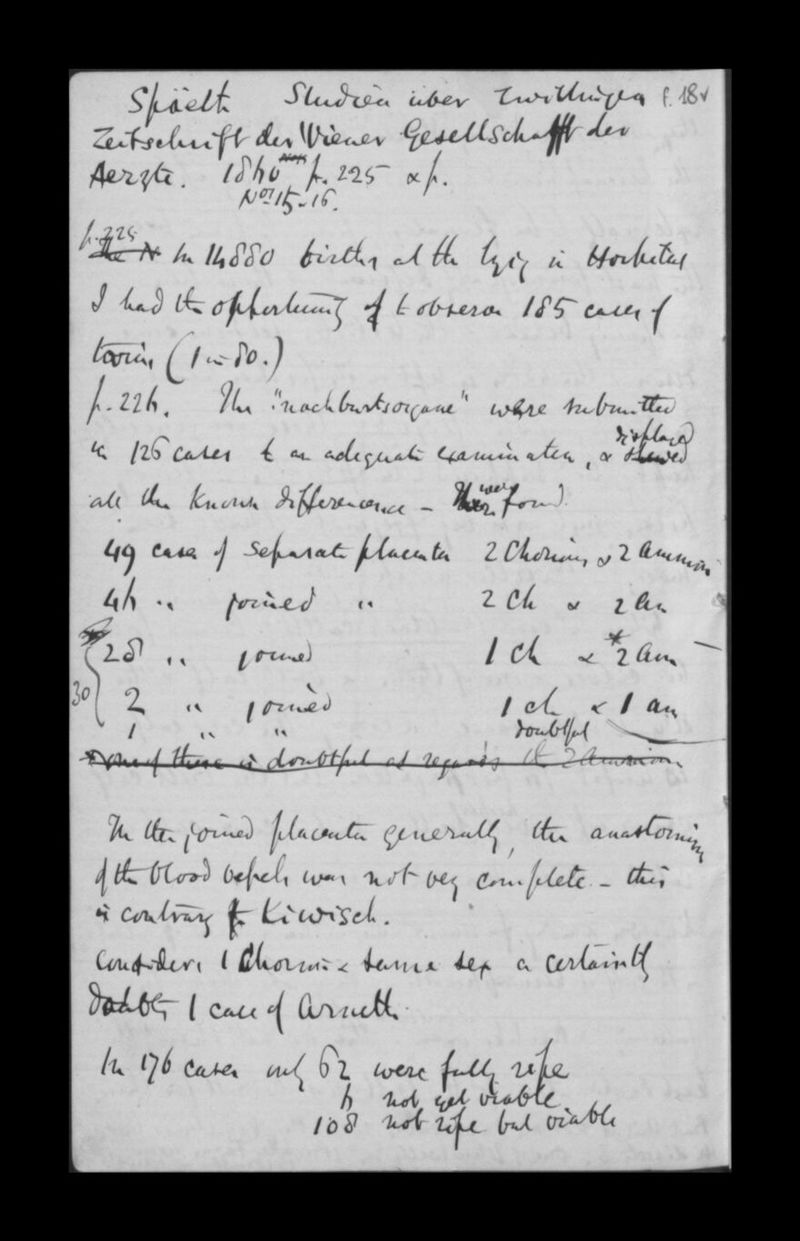 Späeth Studien über Zwillingen f. 18v
Zeitschrift der Wiener Gesellschafft der
Aerzte. 1860 p. 225 & p.
Nos 15-16.
p. 225
The N In 14880 births at the lying in Hospital
I had the opportunity of to observe 185 cases of
twins (1 in 80.)
p. 226. The "nachburtsorgane" were submitted
in 126 cases to an adequate examination, & shewed displayed
all the known differences - There were found
49 cases of separate placenta 2 Chorions & 2 amnion
46 " joined " 2 Ch & 2 am
28 " joined 1 Ch & *2 am
30 2 " joined 1 ch & 1 am
1 " " doubtful
* one of these is doubtful as regards the 2 amnion
In the joined placenta generally, the anastomising
of the blood vessels was not very complete - this
is contrary to Kiwisch.
Considers 1 Chorion & same sex a certainty
doubts 1 case of Arneth.
In 176 cases only 62 were fully ripe
6 not yet viable
108 not ripe but viable